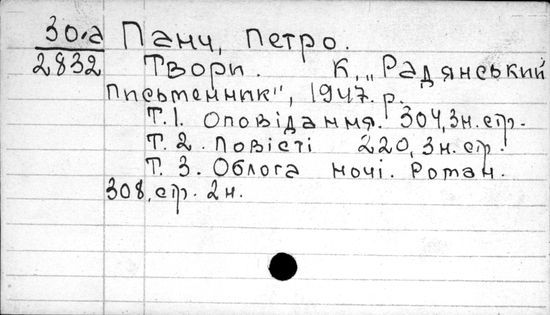 30.а Панч, Петро.
2832 Твори. К., „Радянський
письменник", 1947.р.
Т.1. Оповідання. 304,3н.стр.
Т.2. Повісті 220,3н.стр.
Т.3. Облога ночі. Роман.
308,стр. 2н.